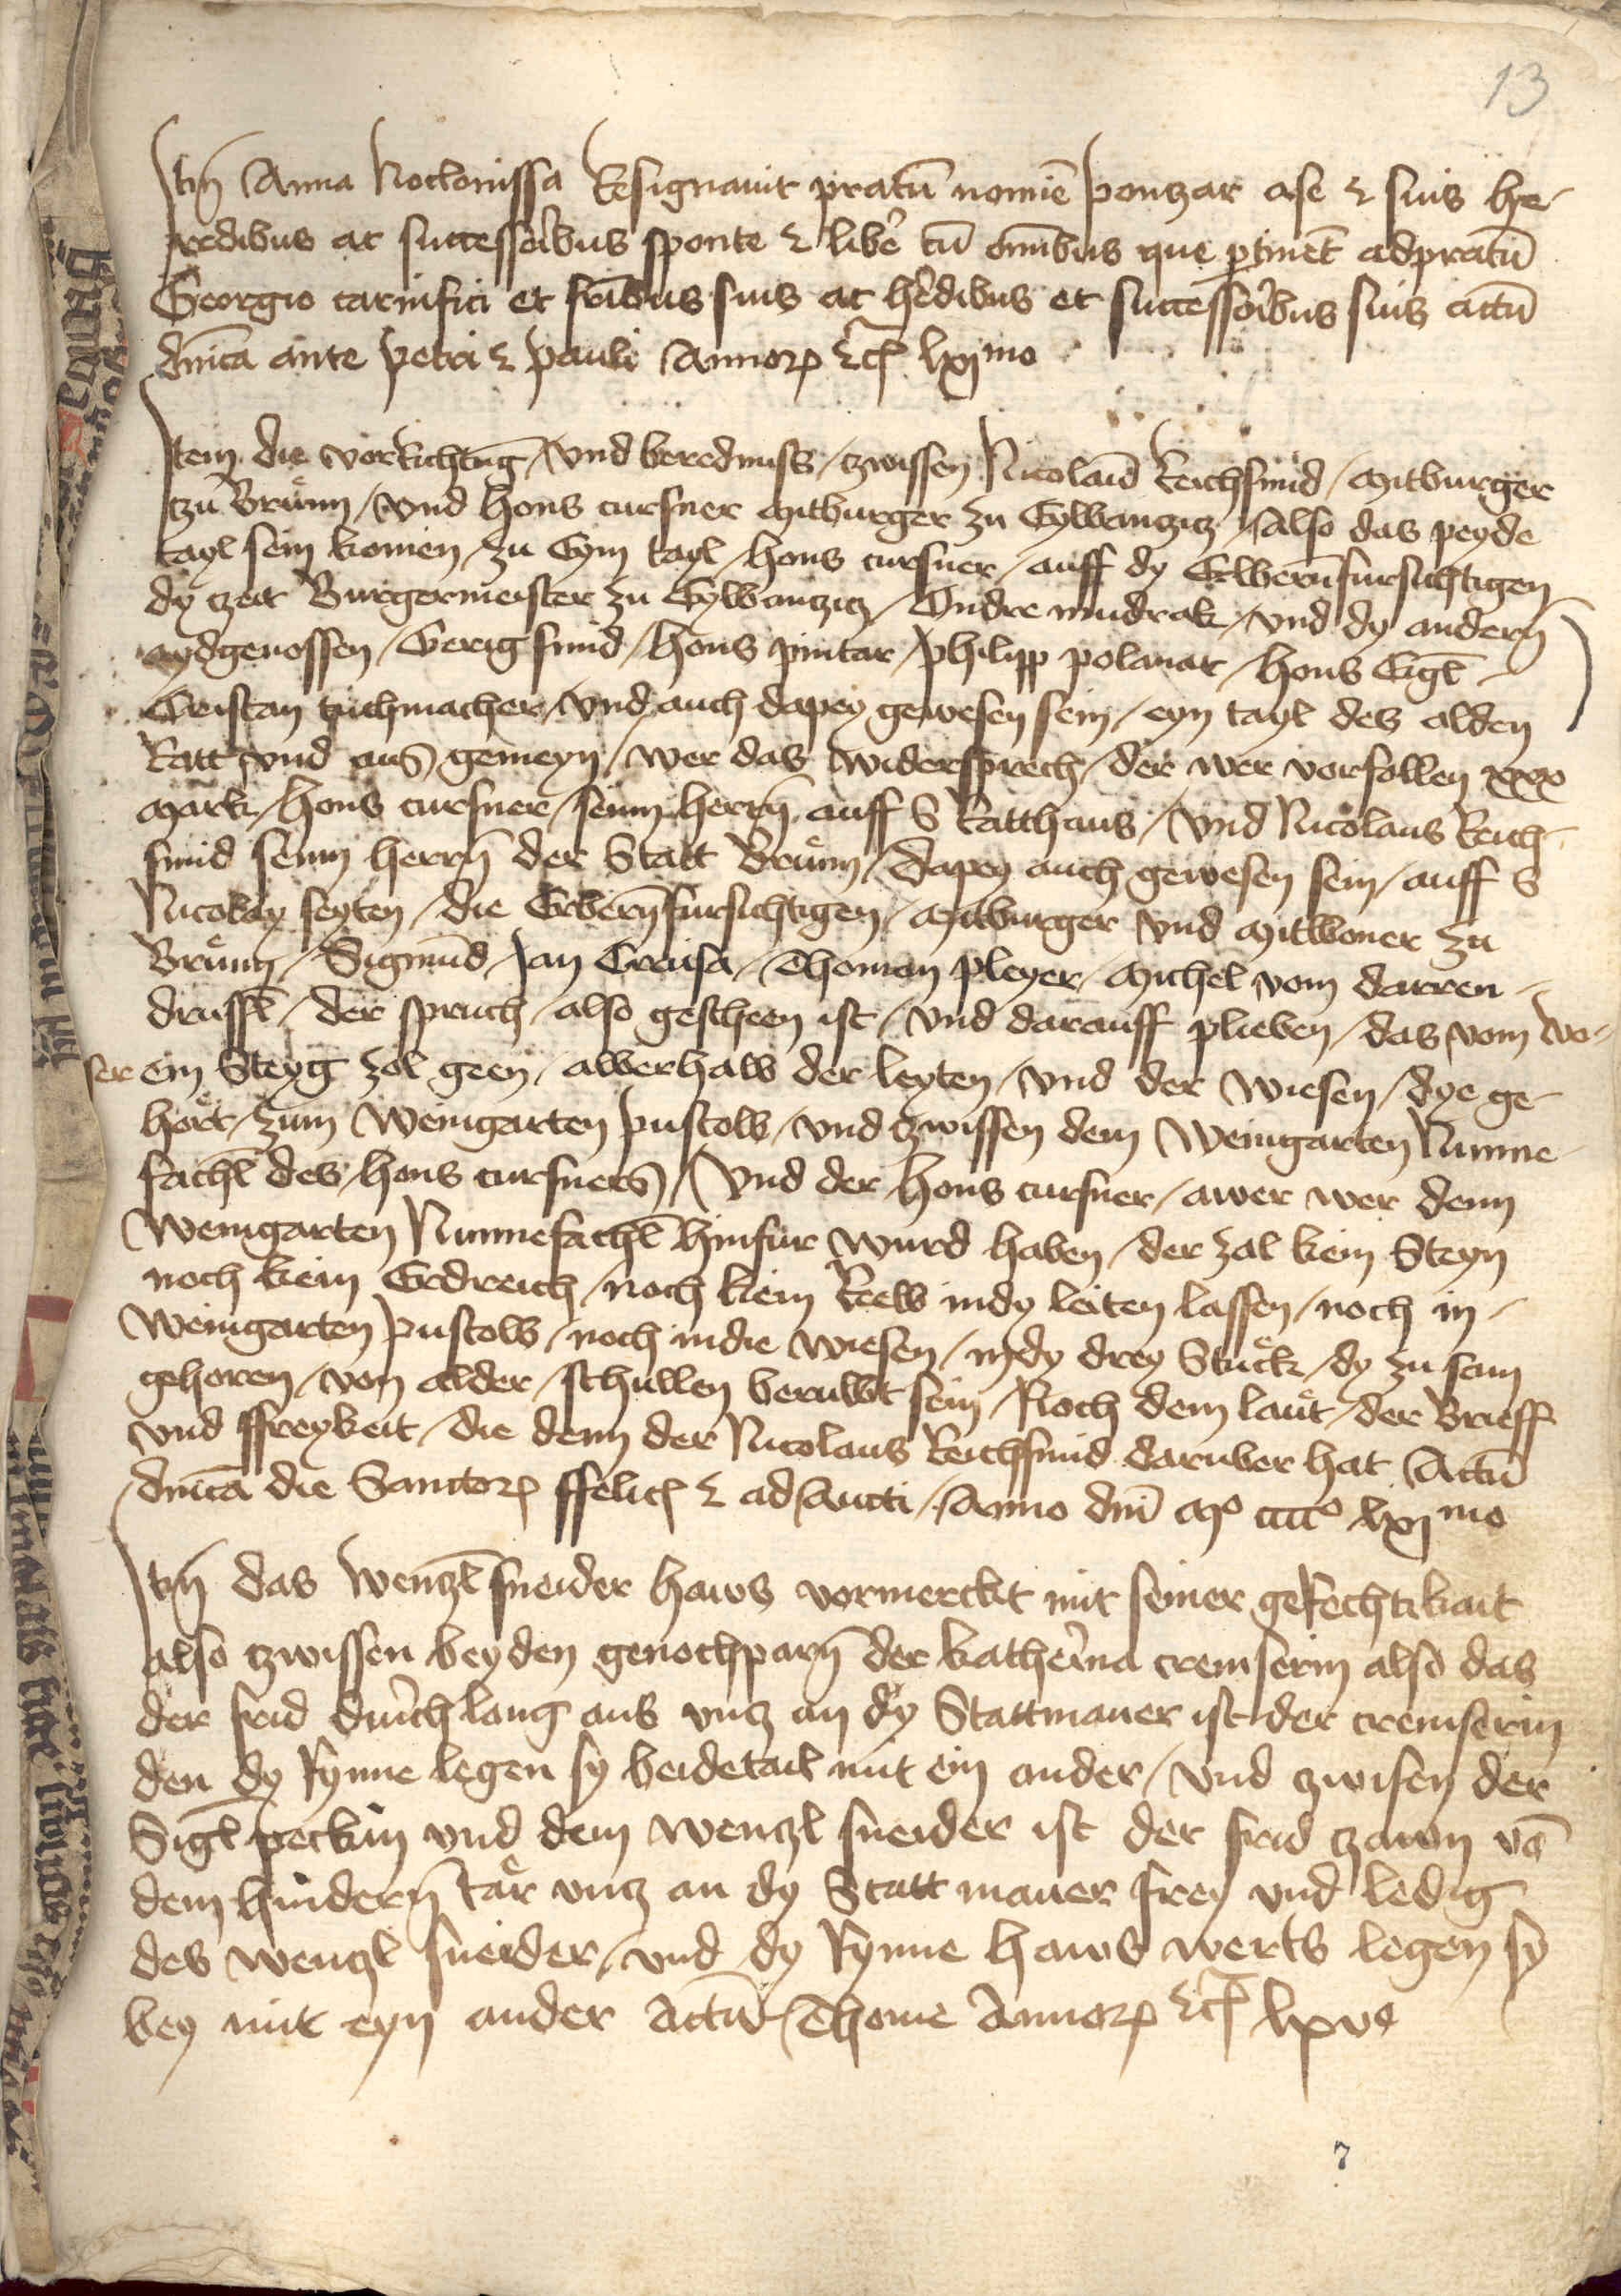 13
Itm̄ Anna Noctonissa Resignauit pratū nomīe Ponczar a se et suis he-
redibus ac successoribus sponte et libe͛ cū om̄ibus que ꝑtinēt ad pratū
Georgio carnifici et fr̄ibus suis ac he͛dibus et successoribus suis actū
dn̄ica ante petri et pauli Annoꝝ etcꝭ lxijmo
Item die vorrichtūg / vnd berednuss / zwissen Nicolaū Reichsmid / mitburger
czu Brünn / vnd hons cursner mitburger zu Eylbanczicz / Also das peyde
tayl sein komen / zu Eym tayl / hons cursner / auff dy Erberñ fursichtigen
dy czeit Burgermeister zu Eylbanczicz / Andre mudrak / vnd dy anderñ
aydgenossen / Gerig smid / hons pintar / philipp polanar / hons Eigl̄
Cristan tuchmacher / vnd auch dapey gewesen sein / eyn tayl des alden
Ratt vnd aus gemeyn / wer das widersprech / der wer vorfollen xxxx
mark / hons cursner / seinn herrñ auff s Ratthaus / Vnd Nicolaus Reich-
smid seinn herrñ der Statt Brünn / Dapey auch gewesen sein / auff s
Nicolay seyten / die Erberñ fursichtigen / mitburger vnd mitboner zu
Brünn / Sigmūd / Jan Creusa / Thoman pleyer / Michel vom darren-
drussl̄ / der spruch / also gescheen ist / vnd darauff plieben / das vom wa-
ser ein Steyg zol geen / alberhalb der leyten / vnd der wiesen / dye ge-
hört / zum Weingarten pustolb / vnd zwissen dem Weingarten Nunne-
sachl̄ des / hons cursners / Vnd der hons cursner / awer wer denn
Weingarten Nunnesachl̄ hinfur wurd haben / der zal kein Steyn
noch kein Erdreich / noch kein Reeb in dy leiten lassen / noch in
Weingarten pustolb / noch in die wiesen / in dy drey Stück / dy zu sam
gehoren / von alder / schullen berubt sein / Noch dem laut / der Brieff
vnd ffreykeit / die denn der Nicolaus Reichsmid daruber hat Actū
dn̄ica die Sanctoꝝ ffelicꝭ et adaucti / Anno dn̄i Mº ccccº lxijmo
Itm̄ das Wenczl̄ sneider haws vormerckt mit seiner gerechtikait
also zwissen beyden genochparñ der katherina cremserin also das
der frid durch lang aus vncz an dy Stattmauer ist der cremserin
den dy Rynne legen sy beidetail mit ein ander / vnd zwisen der
Sigl̄ peckin vnd dem wenczl sneider ist der frid zawn vō
dem hinderñ tar vncz an dy Statt mauer frey vnd ledig
des wenczl sneider / vnd dy Rynne haws werts legen sy
bey mit eyn ander Actū Thome Annoꝝ etcꝭ lxvº
7